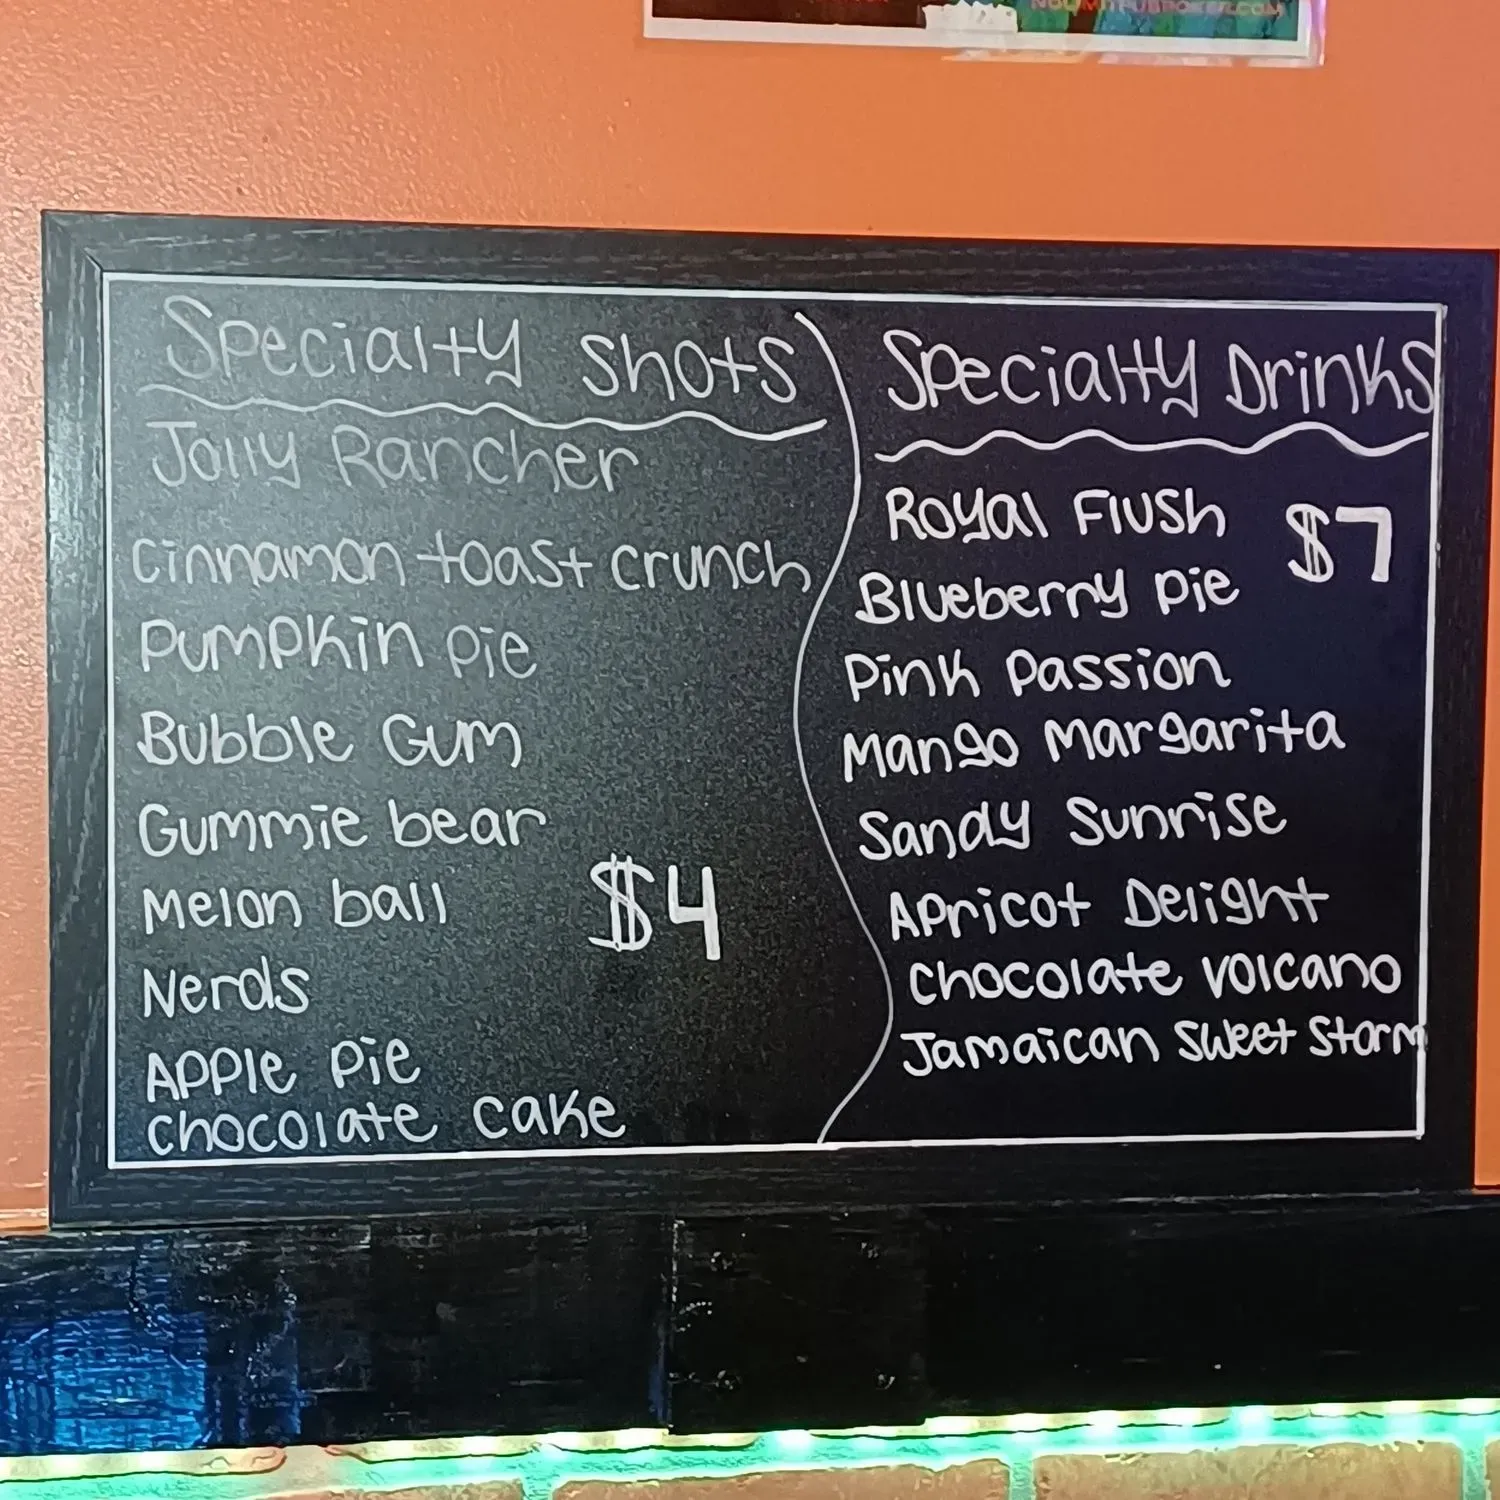 NOLIMITPUBPOKER.COM
Specialty Shots
Jolly Rancher
Cinnamon toast crunch
Pumpkin pie
Bubble Gum
Gummie bear
Melon ball
$4
Nerds
Apple pie
Chocolate cake
Specialty Drinks
Royal Flush
$7
Blueberry pie
Pink Passion
Mango Margarita
Sandy Sunrise
Apricot Delight
Chocolate Volcano
Jamaican Sweet Storm